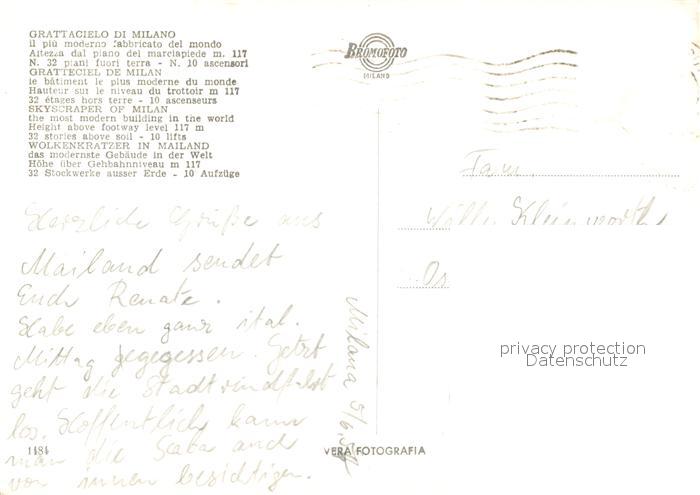 GRATTACIELO DI MILANO
il più moderno fabbricato del mondo
Altezza dal piano del marciapiede m. 117
N. 32 piani fuori terra - N. 10 ascensori
GRATTECIEL DE MILAN
le bâtiment le plus moderne du monde
Hauteur sur le niveau du trottoir m 117
32 étages hors terre - 10 ascenseurs
SKYSCRAPER OF MILAN
the most modern building in the world
Height above footway level 117 m
32 stories above soil - 10 lifts
WOLKENKRATZER IN MAILAND
das modernste Gebäude in der Welt
Höhe über Gehbahnniveau m 117
32 Stockwerke ausser Erde - 10 Aufzüge
BROMOFOTO
MILANO
Herzliche Grüße aus
Mailand sendet
Euch Renate.
Habe eben ganz ital.
Mittag gegegessen. Jetzt
geht die Stadtrundfahrt
los. Hoffentlich kann
man die Scala auch
von innen besichtigen.
1184
Milano 5/6.
VERA FOTOGRAFIA
Fam.
Kleinworth
Os
privacy protection
Datenschutz